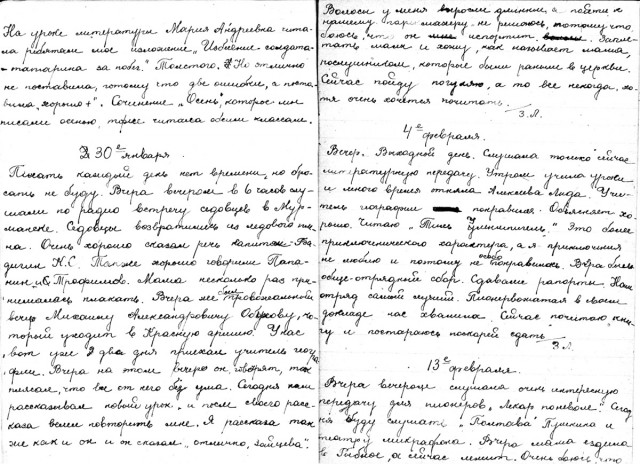 На уроке литературы Мария Андреевна чита-
ла ребятам мое изложение "Избиение солдата
-татарина за побег" Толстого. Но отлично
не поставила, потому что две ошибки, а поста-
вила "хорошо+". Сочинение "Осень", которое мы
писали осенью, тоже читала обоим классам.
30е января.
Писать каждый день нет времени, но бро-
сать не буду. Вчера вечером в 6 часов слу-
шали по радио встречу седовцев в Мур-
манске. Седовцы возвратились из ледового пле-
на. Очень хорошо сказал речь капитан Ба-
дигин К.С. Также хорошо говорили Папа-
нин и Трофимов. Мама несколько раз при-
нималась плакать. Вчера же был провожальной
вечер Михаилу Александровичу, ко-
торый уходит в Красную армию. У нас
вот уже 2 два дня приехал учитель геогра-
фии. Вчера на том вечере он говорят, так
плясал, что все от него без ума. Сегодня нам
рассказывал новый урок, и после своего расс-
каза велел повторить мне. Я рассказала так
же как и он и он сказал "отлично, Зайцева".
Волосы у меня длинные, а пойти к
нашему парикмахеру не решаюсь, потому что
боюсь, что он испортит. Запле-
тать мала и хожу, как называет мама,
послушником, которые были раньше в церкви.
Сейчас пойду погуляю, а то все некогда, хо-
тя очень хочется почитать.
З.Л.
4е февраля.
Вечер. Выходной день. Слушала только сейчас
литературную передачу. Утром учила уроки
и много время отняла Алексеева Лида. Учи-
тель географии понравился. Объясняет хо-
рошо. Читаю "Тиль Уленшпигель". Это более
приключенического характера, а я приключения
не люблю и поэтому не особо понравилась. Вчера был
обще-отрядный сбор. Сдавали рапорты. Наш
отряд самый лучший. Пионервожатая в своем
докладе нас хвалила. Сейчас почитаю кни-
гу и постараюсь поскорей сдать.
З.Л.
13е февраля.
Вчера вечером слушала очень интересную
передачу для пионеров, "Лекарь поневоле". Сегод-
ня буду слушать "Полтава" Пушкина и
театр у микрофона. Вчера мама ездила
в, а сейчас лежит. Очень боюсь, что